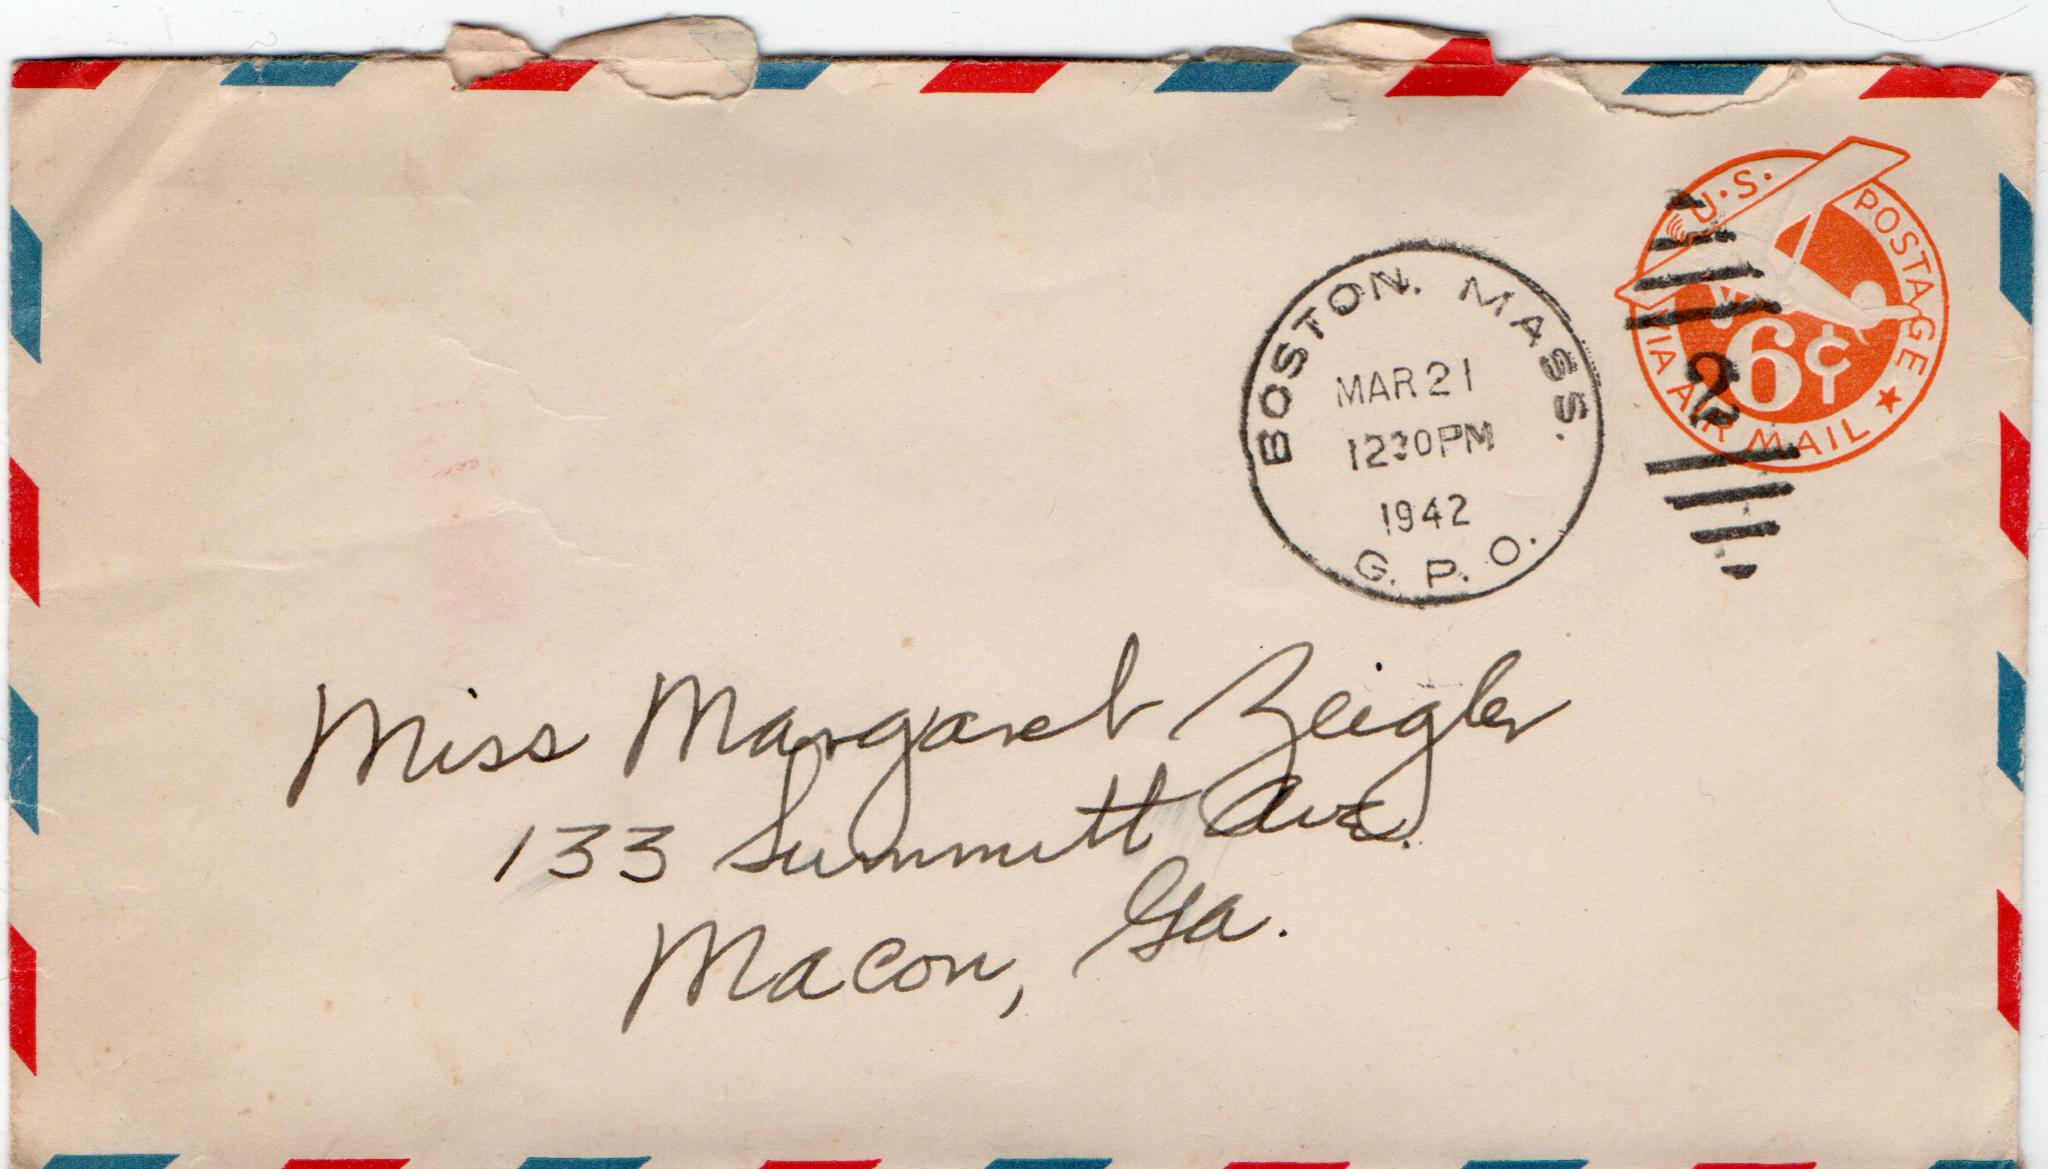 U.S. POSTAGE
VIA AIR MAIL
6¢
BOSTON, MASS.
MAR 21
1230PM
1942
G. P. O.
2
Miss Margaret Zeigler
133 Summitt Ave.
Macon, Ga.